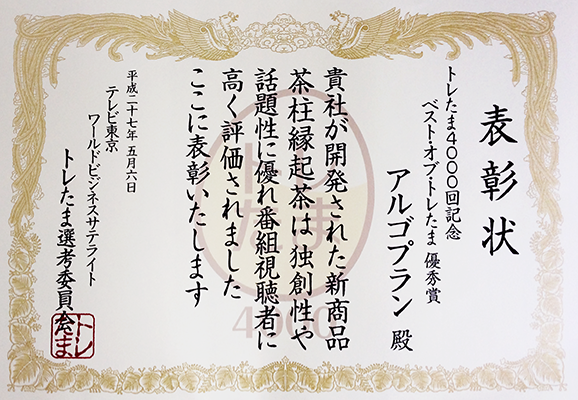 表彰状
トレたま4000回記念
ベスト・オブ・トレたま 優秀賞
アルゴプラン 殿
貴社が開発された新商品
茶柱縁起茶は 独創性や
話題性に優れ番組視聴者に
高く評価されました
ここに表彰いたします
平成二十七年 五月六日
テレビ東京
ワールドビジネスサテライト
トレたま選考委員会
トレ
たま
トレ
たま
4000